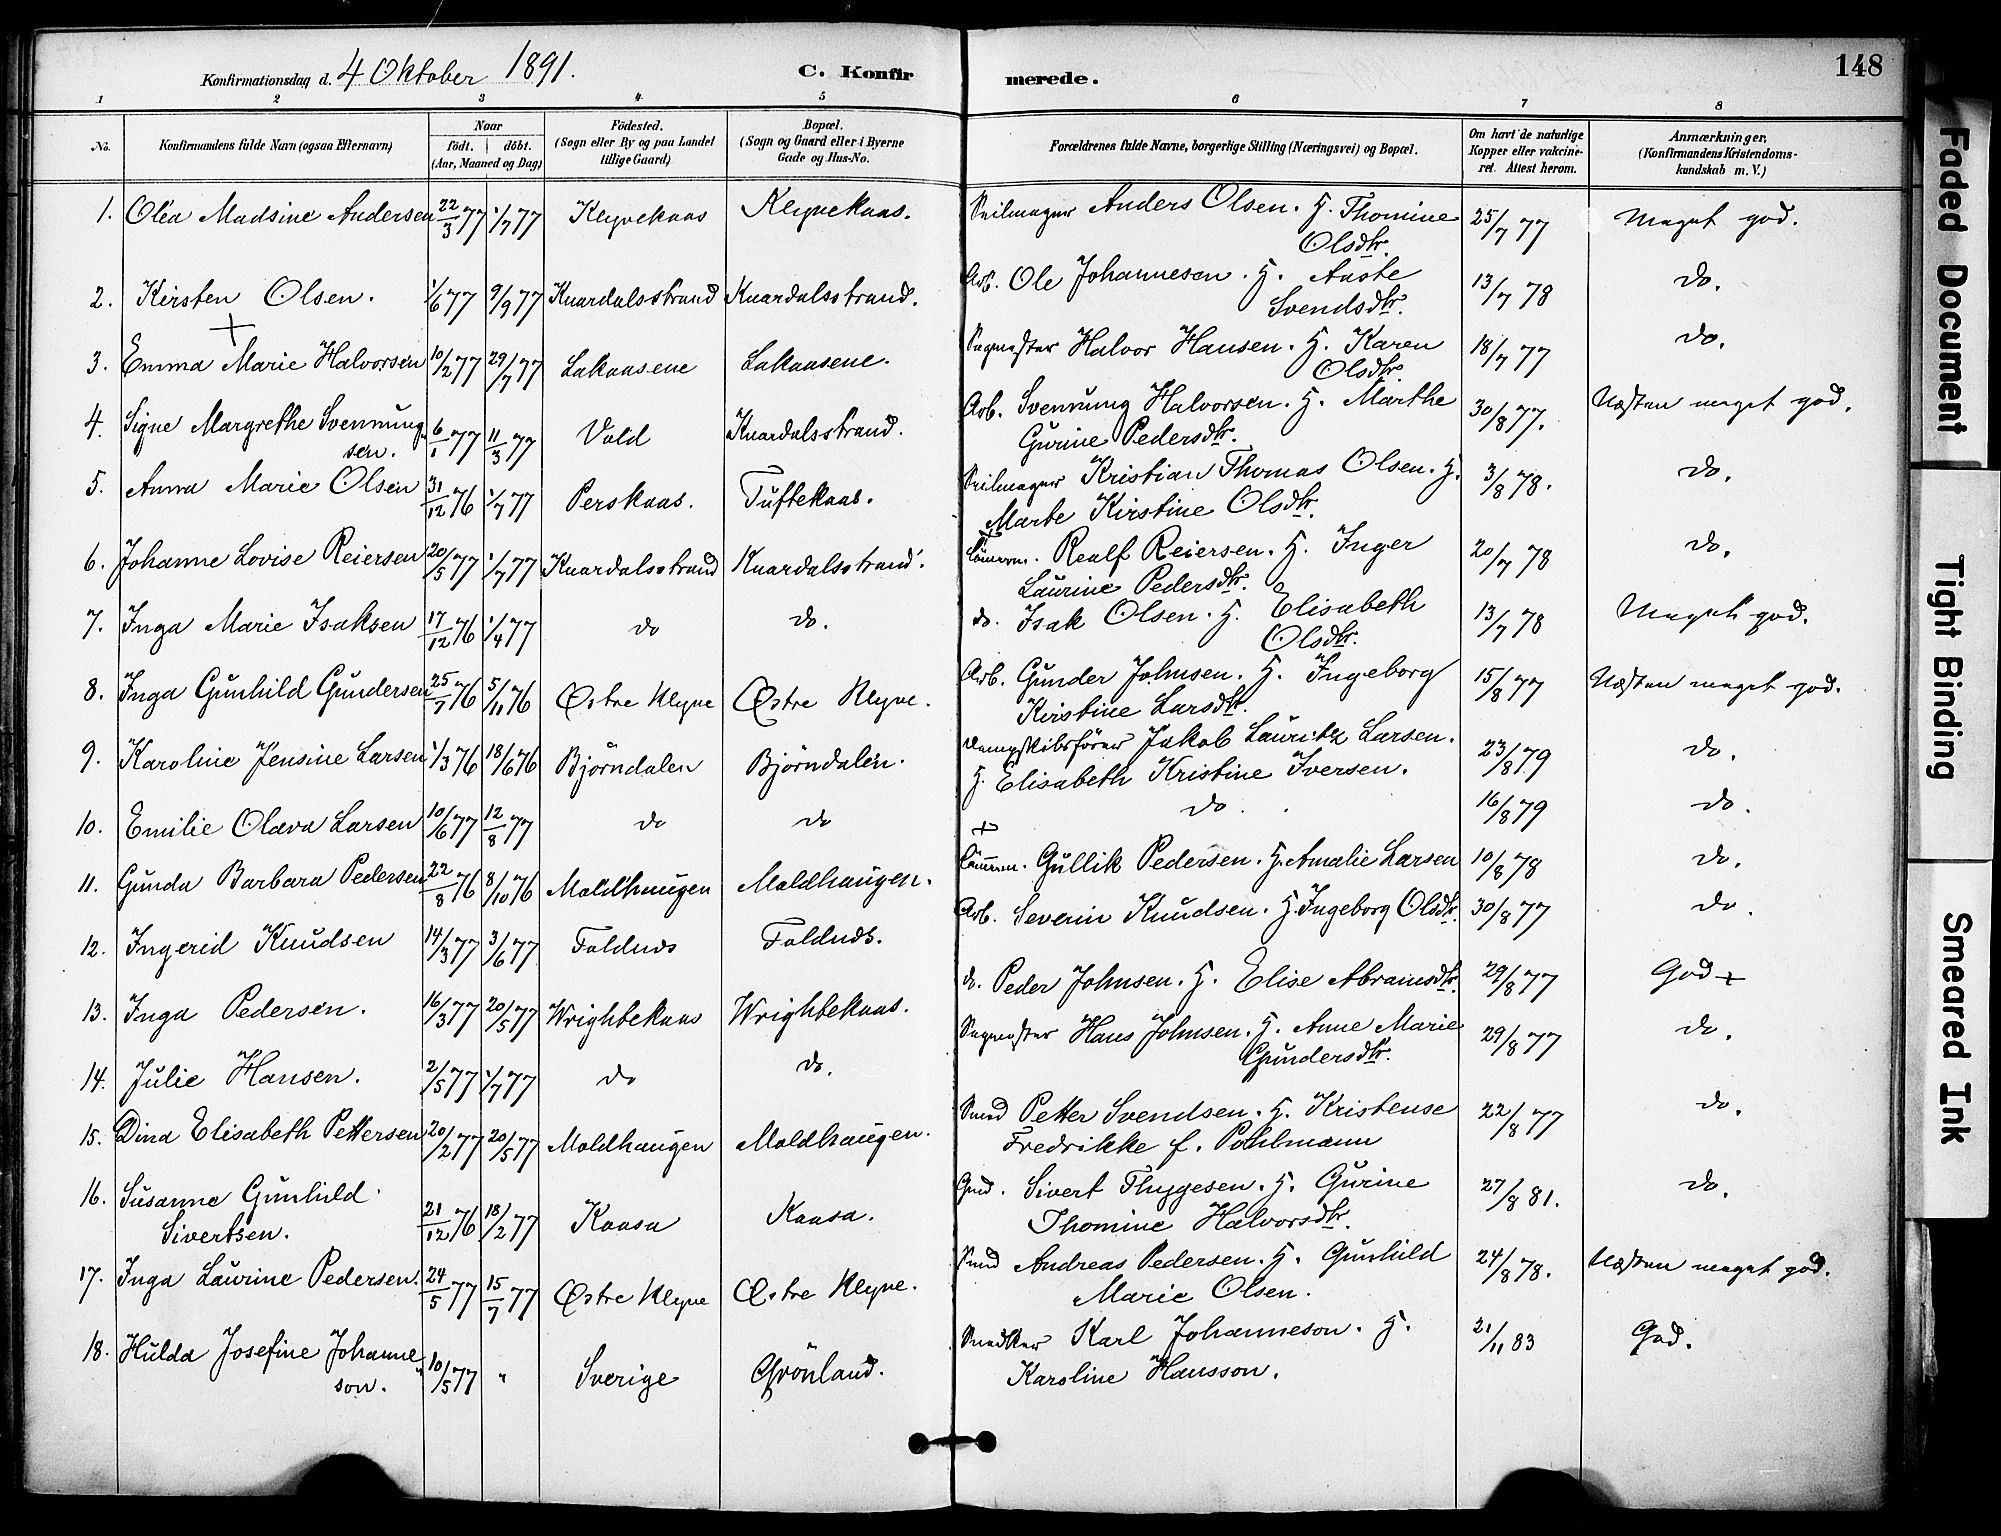 Konfirmationsdag d. 4 Oktober 1891. C. Konfir merede. 148
1 2 3 4 5 6 7 8
No. Konfirmandens fulde Navn (ogsaa Efternavn) Naar født. døbt. (Aar, Maaned og Dag) Fødested. (Sogn eller By og paa Landet tillige Gaard) Bopæl. (Sogn og Gaard eller i Byerne Gade og Hus-No. Forældrenes fulde Navne, borgerlige Stilling (Næringsvei) og Bopæl. Om havt de naturlige Kopper eller vakcineret. Attest herom. Anmærkninger, (Konfirmandens Kristendomskundskab m. V.)
1. Olea Madsine Andersen 22/3 77 1/7 77 Klyvekaas Klyvekaas. Seilmager Anders Olsen. H. Thomine 25/7 77 Meget god.
Olsdtr.
2. Kirsten Olsen. 1/6 77 9/9 77 Knardalsstrand Knardalsstrand. Arb. Ole Johannesen. H. Aaste 13/7 78 do.
Svendsdtr.
3. Emma Marie Halvorsen 10/2 77 29/7 77 Lakaasene Lakaasene. Sagmester Halvor Hansen. H. Karen 18/7 77 do.
Olsdtr.
4. Signe Margrethe Svennung- 6/1 77 11/3 77 Vold Knardalsstrand. Arb. Svennung Halvorsen. H. Marthe 30/8 77. Næsten meget god.
sen. Gurine Pedersdtr.
5. Anna Marie Olsen 31/12 76 1/7 77 Perskaas. Tuftekaas. Seilmager Kristian Thomas Olsen. H. 3/8 78. do.
Marte Kirstine Olsdtr.
6. Johanne Lovise Reiersen 20/5 77 1/7 77 Knardalsstrand Knardalsstrand. Tömmerm. Realf Reiersen. H. Inger 20/7 78 do.
Laurine Pedersdtr.
7. Inga Marie Isaksen 17/12 76 1/4 77 do do. do. Isak Olsen. H. Elisabeth 13/7 78 Meget god.
Olsdtr.
8. Inga Gunhild Gundersen 25/7 76 5/11 76 Østre Klyve Østre Klyve. Arb. Gunder Johnsen. H. Ingeborg 15/8 77 Næsten meget god.
Kirstine Larsdtr.
9. Karoline Jensine Larsen 1/3 76 18/6 76 Björndalen Björndalen. Dampskibsförer Jakob Lauritz Larsen. 23/8 79 do.
H. Elisabeth Kristine Iversen.
10. Emilie Olava Larsen 10/6 77 12/8 77 do do do 16/8 79 do.
11. Gunda Barbara Pedersen 22/8 76 8/10 76 Moldhaugen Moldhaugen. Tömmerm. Gullik Pedersen. H. Amalie Larsen 10/8 78 do.
12. Ingerid Knudsen 14/3 77 3/6 77 Foldnes Foldnes. Arb. Severin Knudsen. H. Ingeborg Olsdtr. 30/8 77 do.
13. Inga Pedersen. 16/3 77 20/5 77 Wrightekaas Wrightekaas. do. Peder Johnsen. H. Elise Abramsdtr. 29/8 77 God +
14. Julie Hansen. 2/5 77 1/7 77 do do. Sagmester Hans Johnsen. H. Anne Marie 29/8 77 do.
Gundersdtr.
15. Dina Elisabeth Pettersen 20/2 77 20/5 77 Moldhaugen Moldhaugen. Smed Petter Svendsen. H. Kristense 22/8 77 do.
Fredrikke f. Pohlmann
16. Susanne Gunhild 21/12 76 18/2 77 Kaasa Kaasa. Gmd. Sivert Thygesen. H. Gurine 27/8 81. do.
Sivertsen. Thomine Halvorsdtr.
17. Inga Laurine Pedersen. 24/5 77 15/7 77 Østre Klyve Østre Klyve. Smed Andreas Pedersen. H. Gunhild 24/8 78. Næsten meget god.
Marie Olsen.
18. Hulda Josefine Johanne- 10/5 77 " Sverige Grönland. Snedker Karl Johanneson. H. 21/11 83 God.
son. Karoline Hansson.
Faded Document
Tight Binding
Smeared Ink